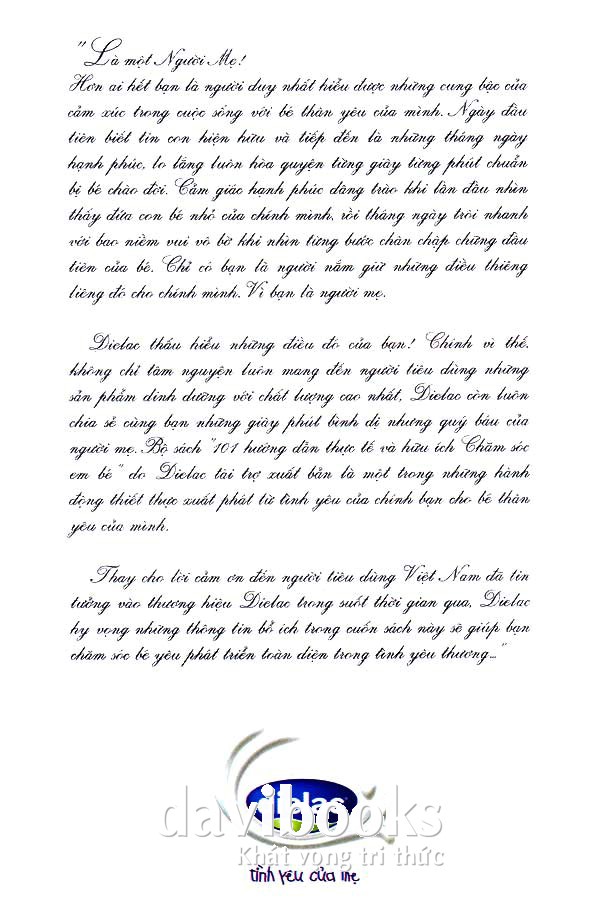 "Là một Người Mẹ!
Hơn ai hết bạn là người duy nhất hiểu được những cung bậc của
cảm xúc trong cuộc sống với bé thân yêu của mình. Ngày đầu
tiên biết tin con hiện hữu và tiếp đến là những tháng ngày
hạnh phúc, lo lắng luôn hòa quyện từng giây từng phút chuẩn
bị bé chào đời. Cảm giác hạnh phúc dâng trào khi lần đầu nhìn
thấy đứa con bé nhỏ của chính mình, rồi tháng ngày trôi nhanh
với bao niềm vui vô bờ khi nhìn từng bước chân chập chững đầu
tiên của bé. Chỉ có bạn là người nắm giữ những điều thiêng
liêng đó cho chính mình. Vì bạn là người mẹ.
Dielac thấu hiểu những điều đó của bạn! Chính vì thế,
không chỉ tâm nguyện luôn mang đến người tiêu dùng những
sản phẩm dinh dưỡng với chất lượng cao nhất, Dielac còn luôn
chia sẻ cùng bạn những giây phút bình dị nhưng quý báu của
người mẹ. Bộ sách "101 hướng dẫn thực tế và hữu ích Chăm sóc
em bé" do Dielac tài trợ xuất bản là một trong những hành
động thiết thực xuất phát từ tình yêu của chính bạn cho bé thân
yêu của mình.
Thay cho lời cảm ơn đến người tiêu dùng Việt Nam đã tin
tưởng vào thương hiệu Dielac trong suốt thời gian qua, Dielac
hy vọng những thông tin bổ ích trong cuốn sách này sẽ giúp bạn
chăm sóc bé yêu phát triển toàn diện trong tình yêu thương..."
dielac
davibooks
Khát vọng tri thức
tình yêu của mẹ